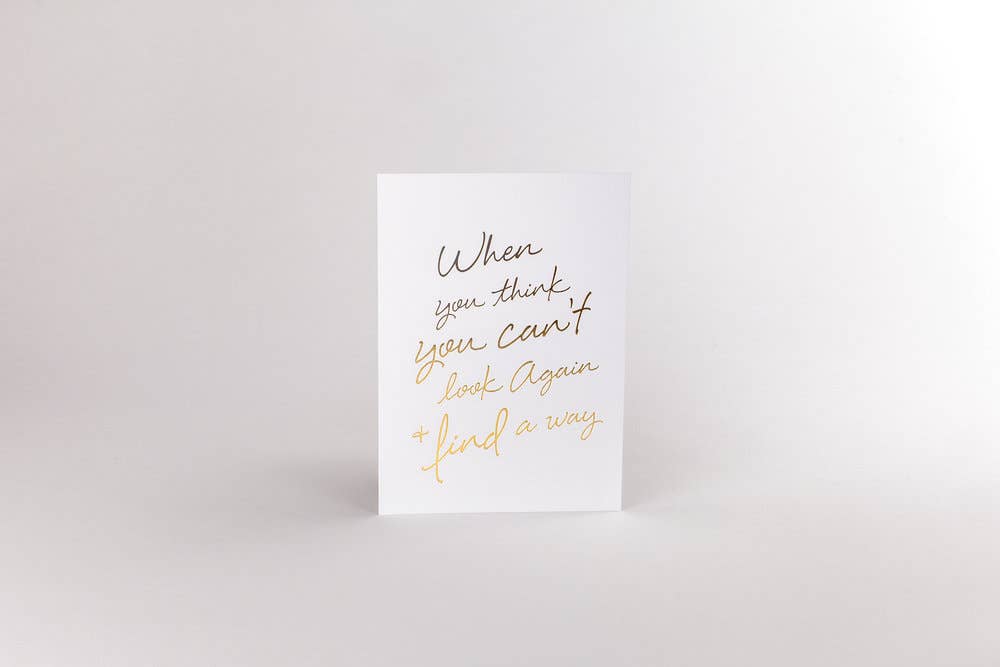 When
you think
you can't
look Again
+ find a way